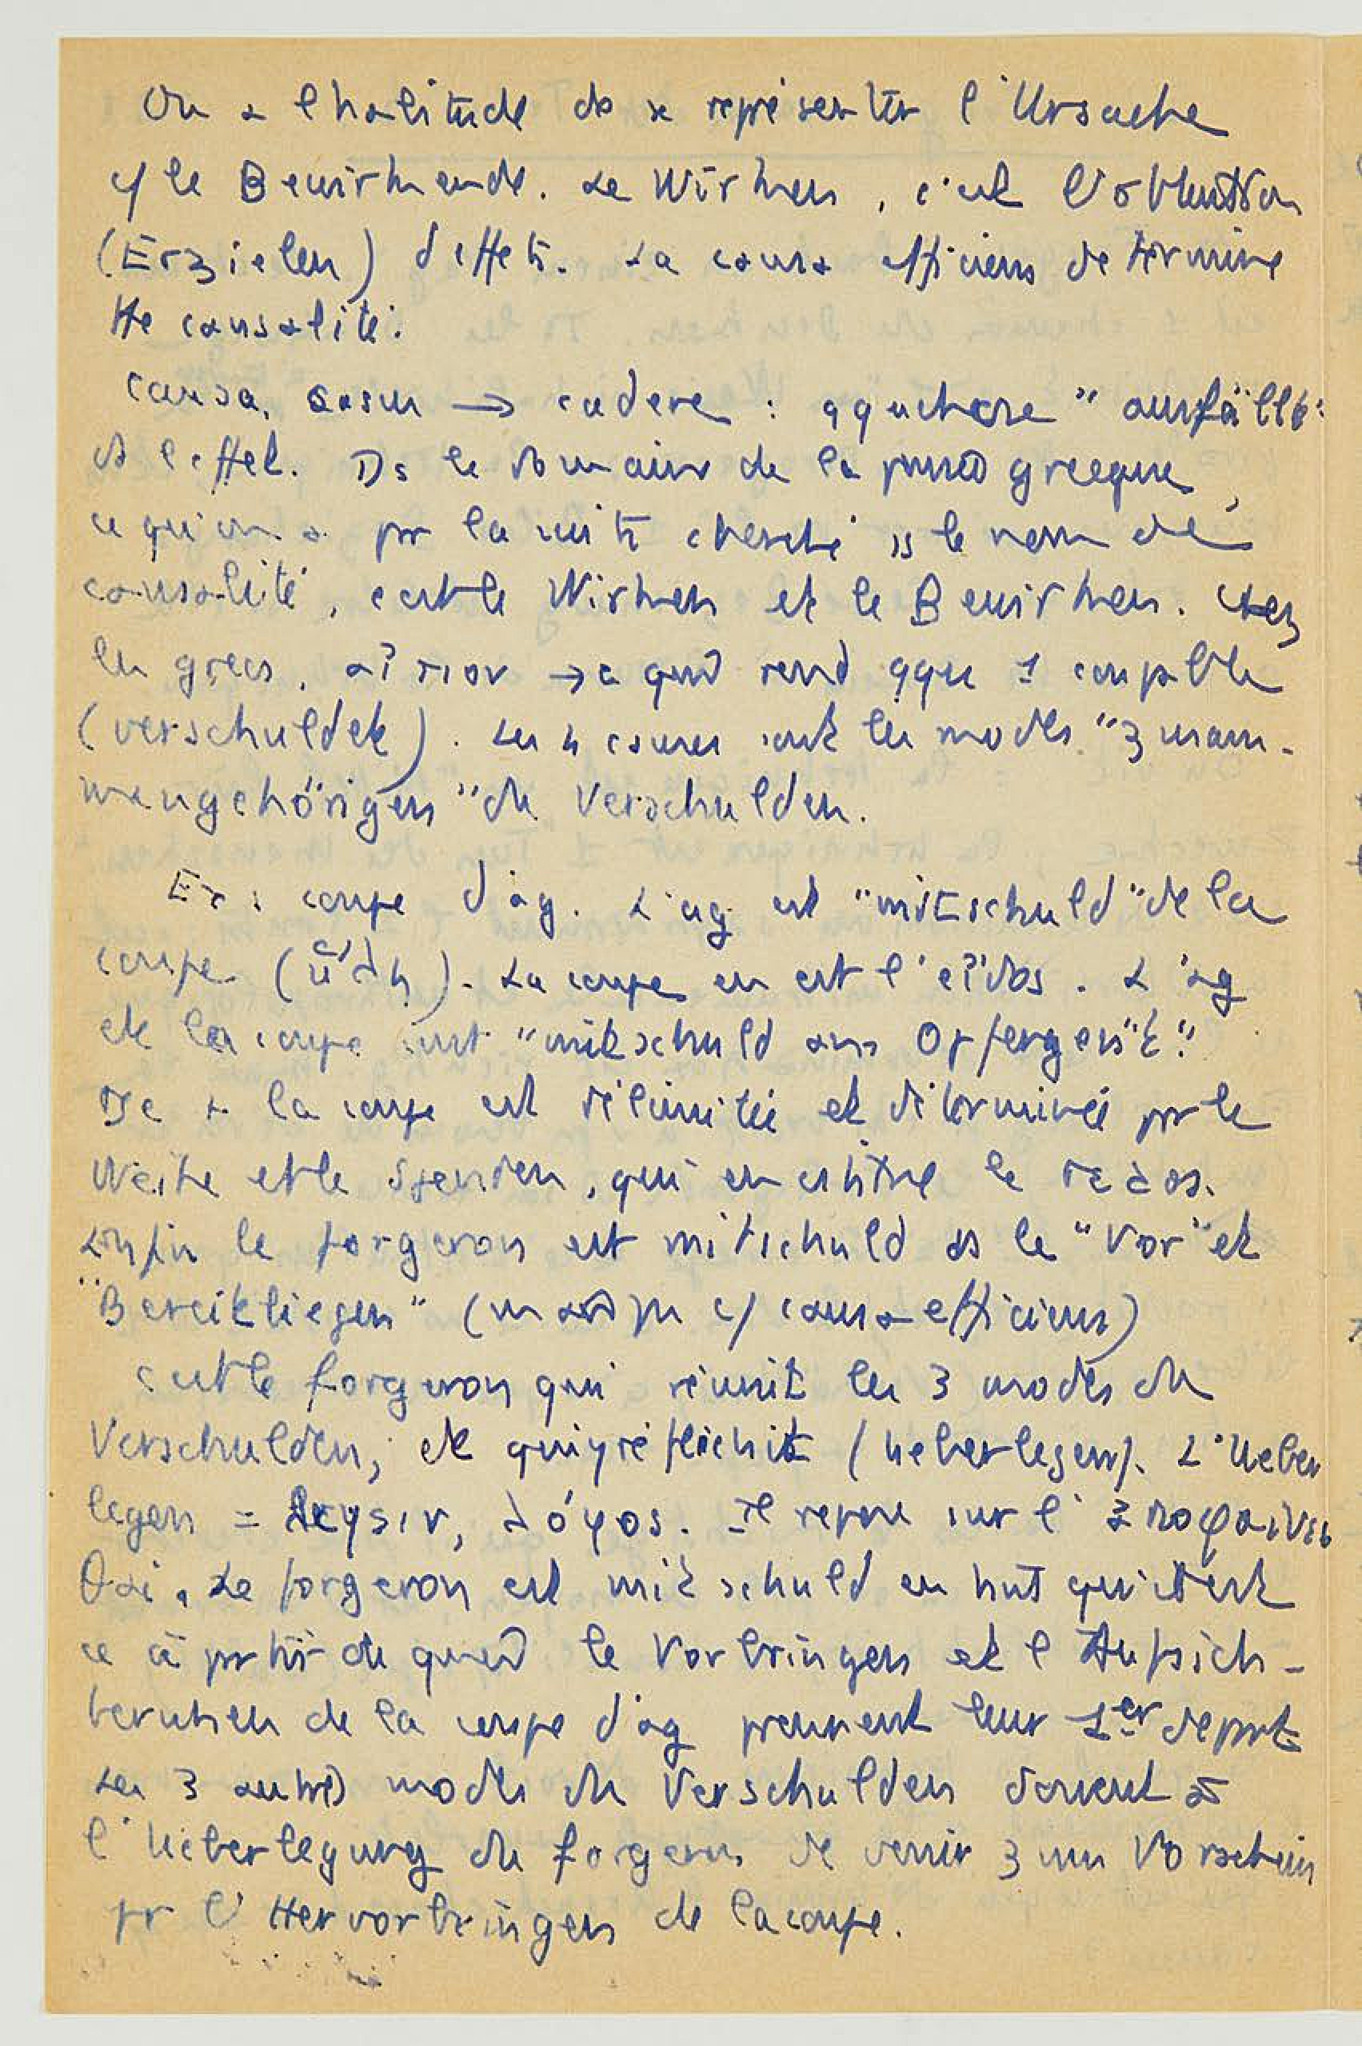 On a l'habitude de se représenter l'Ursache
c/ le Bewirkende. Le Wirken, c'est l'obtention
(Erzielen) d'effets. La causa efficiens détermine
tte causalité.
Causa, casus → cadere : qquchose "ausfällt"
ds l'effet. Ds le domaine de la pensée grecque,
ce qu'on a pr la suite cherché ss le nom de
causalité, c'est le Wirken et le Bewirken. Chez
les grecs, αἴτιον → ce qui rend qque 1 coupable
(verschuldet). Les 4 causes sont les modes "zusam-
mengehörigen" du Verschulden.
Ex : coupe d'arg. L'arg est "mitschuld" de la
coupe (ὕλη). La coupe en est l'εἶδος. L'arg
et la coupe sont "mitschuld ans Opfergerät".
De + la coupe est délimitée et déterminée pr le
Weihe et le Spenden, qui en constitue le τέλος.
Enfin le forgeron est mitschuld ds le "Vor" et
"Bereitliegen" (mais pas c/ causa efficiens)
C'est le forgeron qui réunit les 3 modes du
Verschulden, et qui y réfléchit (Ueberlegen). L'Ueber
legen = λεγειν, λόγος. Il repose sur l'ἀποφαίνεσ
θαι. Le forgeron est mitschuld en tant qu'il est
ce à partir de quoi le Vorbringen et l'Aufsich-
beruhen de la coupe d'arg prennent leur 1er départ
Les 3 autres modes du Verschulden doivent à
l'Ueberlegung du forgeron de venir zum Vorschein
pr l'Hervorbringen de la coupe.